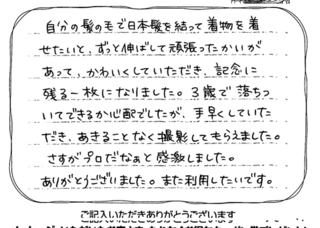 自分の髪の毛で日本髪を結って着物を着
せたいと、ずっと伸ばして頑張ったかいが
あって、かわいくしていただき、記念に
残る一枚になりました。3歳で落ちつ
いてできるか心配でしたが、手早くしていた
だき、あきることなく撮影してもらえました。
さすがプロだなぁと感激しました。
ありがとうございました。また利用したいです。
ご記入いただきありがとうございます